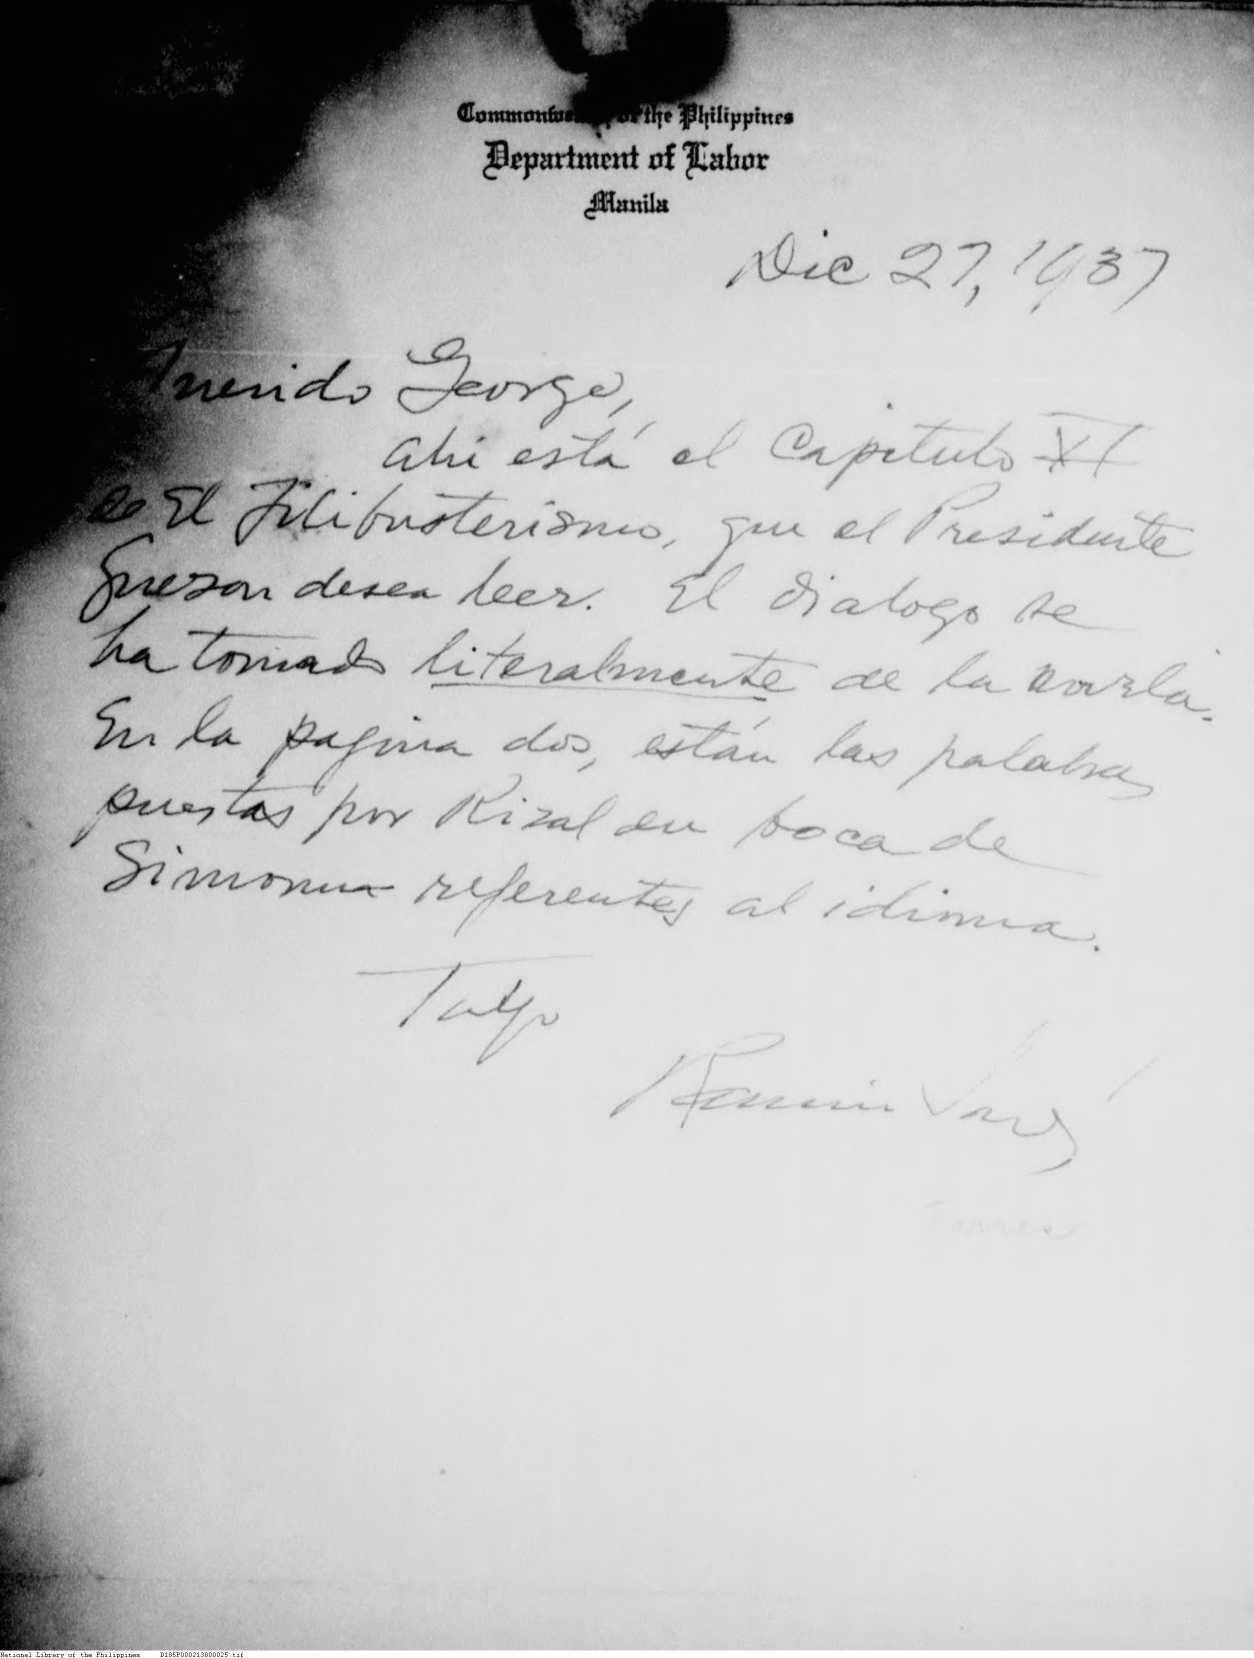 Commonwealth of the Philippines
Department of Labor
Manila
Dic 27, 1937
Querido George,
Ahi está el Capitulo XI
de El Filibusterismo, que el Presidente
Quezon desea leer. El dialogo se
ha tomado literalmente de la novela.
En la pagina dos, están las palabras
puestas por Rizal en boca de
Simoun referentes al idioma.
Tuyo
Ramon Torres
Torres
National Library of the Philippines D185P000213800025.tif